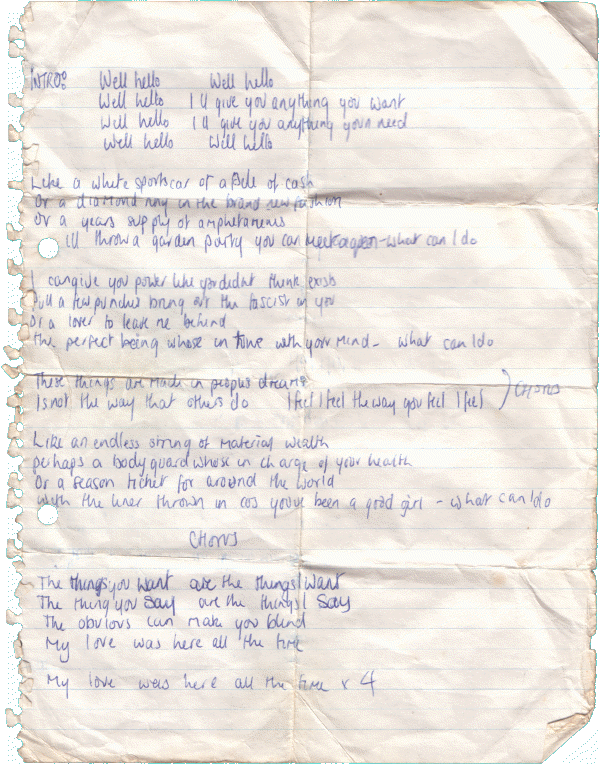 INTRO: Well hello Well hello
Well hello I ll give you anything you want
Well hello I ll give you anything your need
Well hello Well hello
Like a white sportscar or a pile of cash
Or a diamond ring in the brand new fashion
Or a years supply of amphetamenes
ill throw a garden party you can - what can I do
I can give you power like you didnt think exists
Pull a few punches bring out the fascist in you
Or a lover to leave me behind
The perfect being whose in tune with your mind - what can I do
These things are made in peoples dreams
Is not the way that others do I feel I feel the way you feel I feel ) CHORUS
Like an endless string of material wealth
perhaps a bodyguard whose in charge of your health
Or a season ticket for around the world
with the liner thrown in cos youve been a good girl - what can I do
CHORUS
The things you want are the things I want
The thing you say are the things I say
The obvious can make you blind
My love was here all the time
My love was here all the time x 4